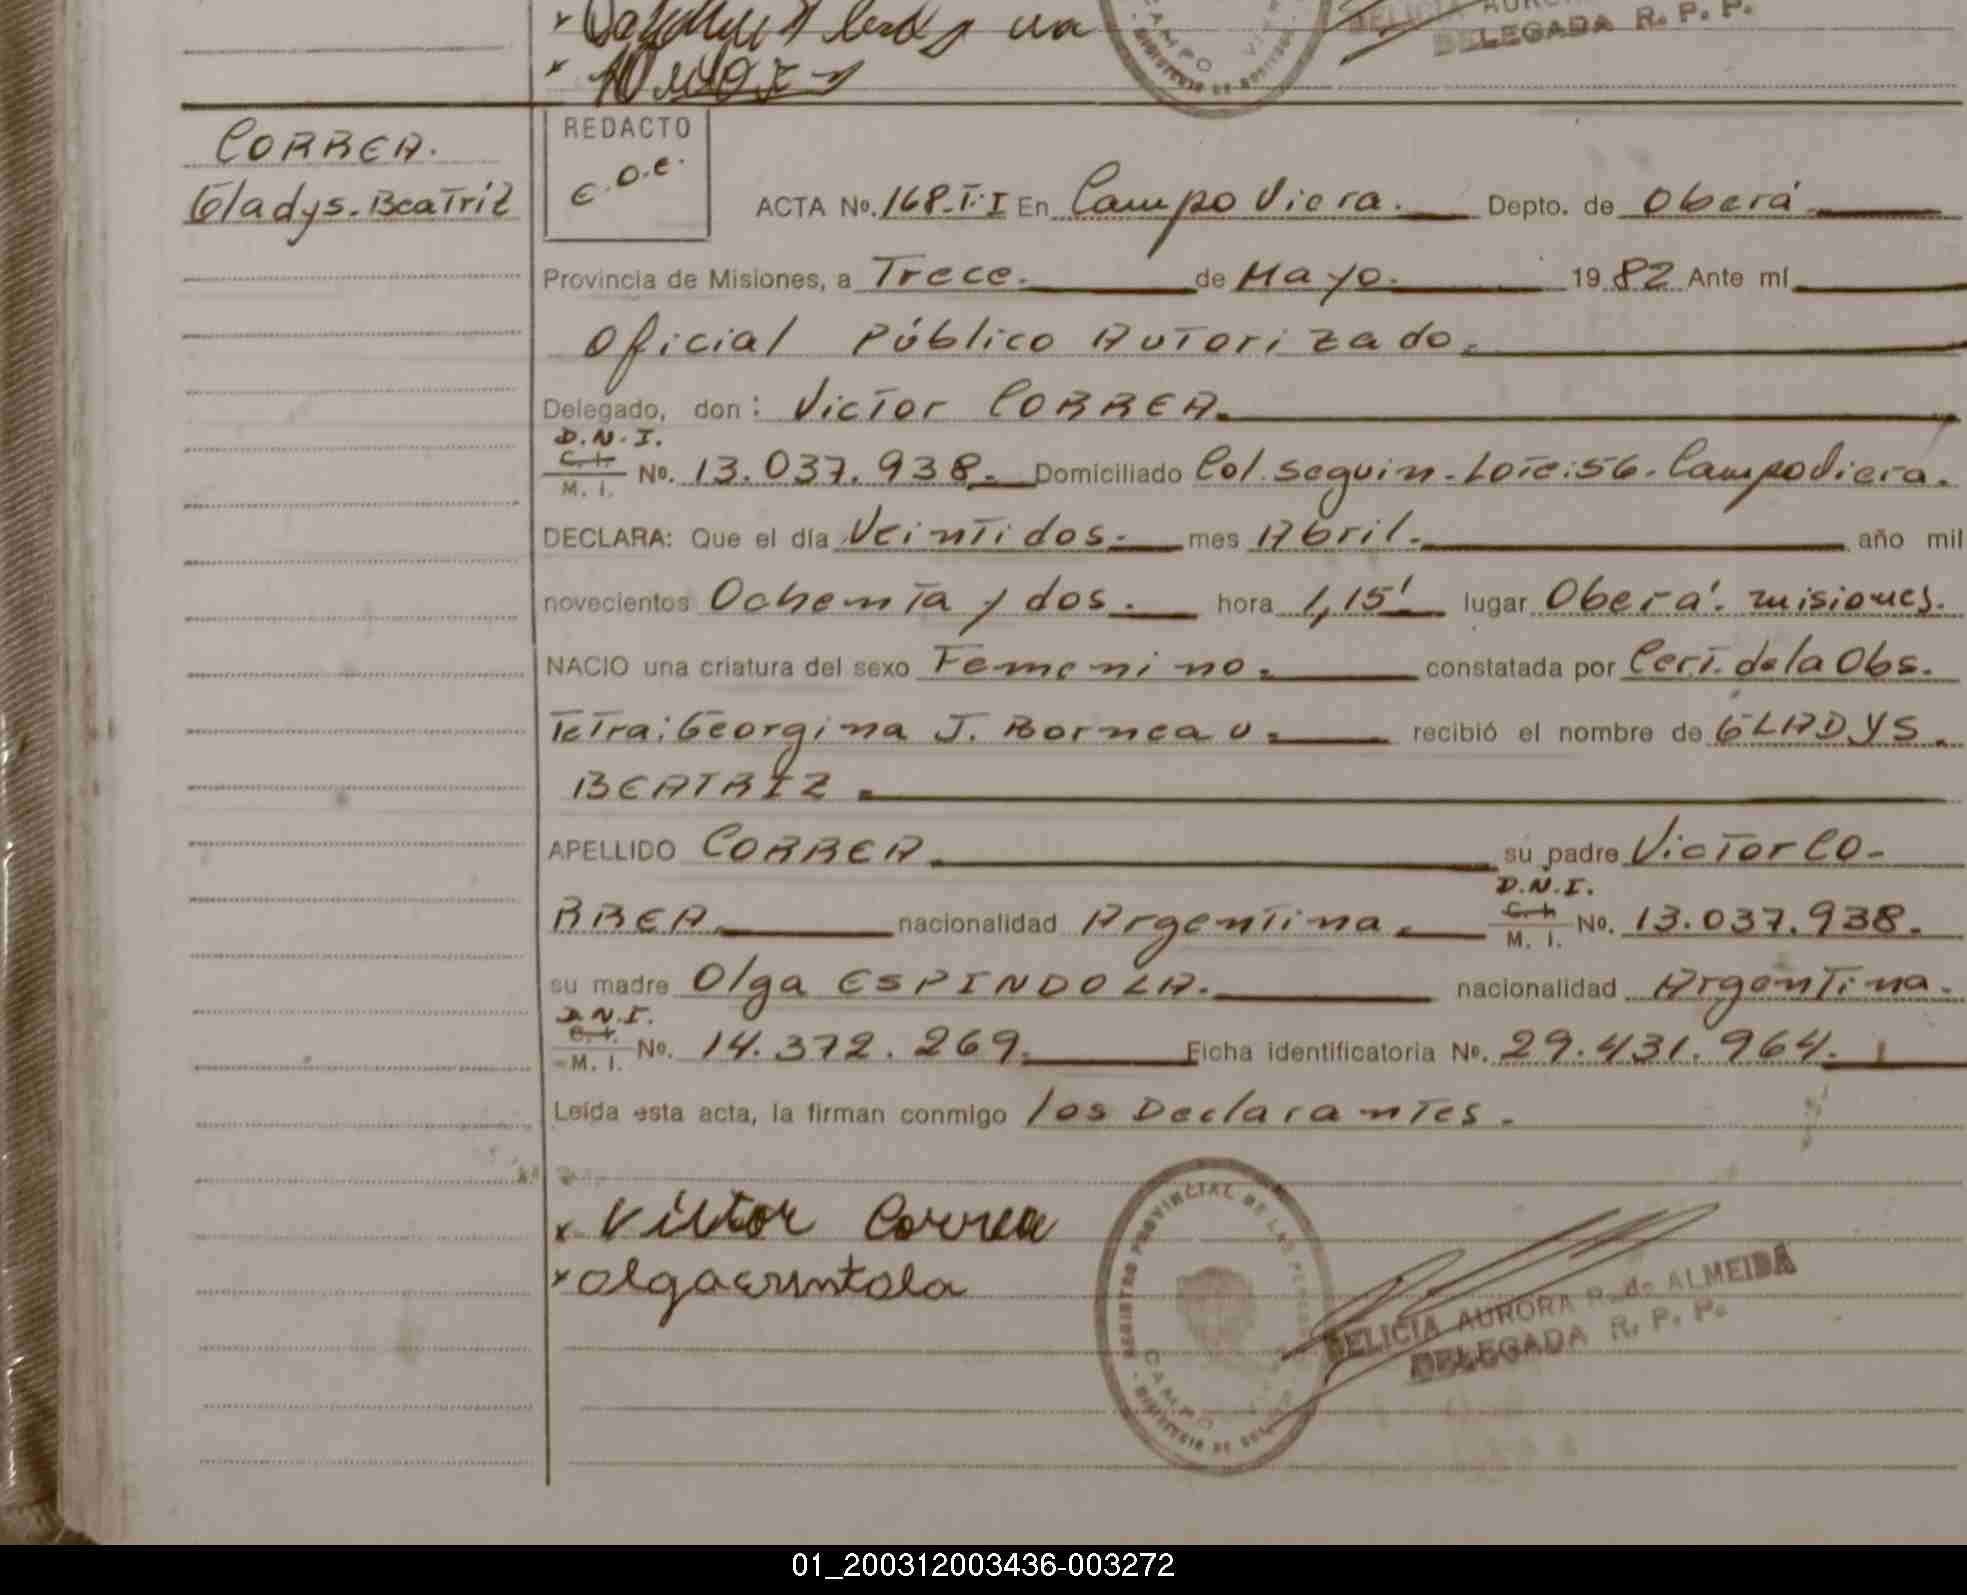 DELEGADA R. P. P.
CORREA.
Gladys. Beatriz
REDACTO
C.O.C.
ACTA No. 168. T: I En Campo Viera. Depto. de Oberá
Provincia de Misiones, a Trece. de Mayo. 1982 Ante mí
Oficial Público Autorizado.
Delegado, don: Victor CORREA.
D.N.I.
C. I.
M. I.
No. 13.037.938. Domiciliado Col. Seguin. Lote: 56. Campo Viera.
DECLARA: Que el día Veintidos. mes Abril. año mil
novecientos Ochenta y dos. hora 1,15' lugar Oberá. Misiones.
NACIO una criatura del sexo Femenino. constatada por Cert. de la Obs.
Tetra; Georgina J. Borneau. recibió el nombre de GLADYS.
BEATRIZ
APELLIDO CORREA su padre Victor CO-
D.N.I.
C. I.
M. I.
RREA. nacionalidad Argentina. No. 13.037.938.
su madre Olga ESPINDOLA. nacionalidad Argentina.
D.N.I.
C. I.
M. I.
No. 14.372.269. Ficha identificatoria No. 29.431.964.
Leída esta acta, la firman conmigo los Declarantes.
x Victor Correa
REGISTRO PROVINCIAL DE LAS PERSONAS
CAMPO
DELICIA AURORA R. de ALMEIDA
DELEGADA R. P. P.
01_200312003436-003272